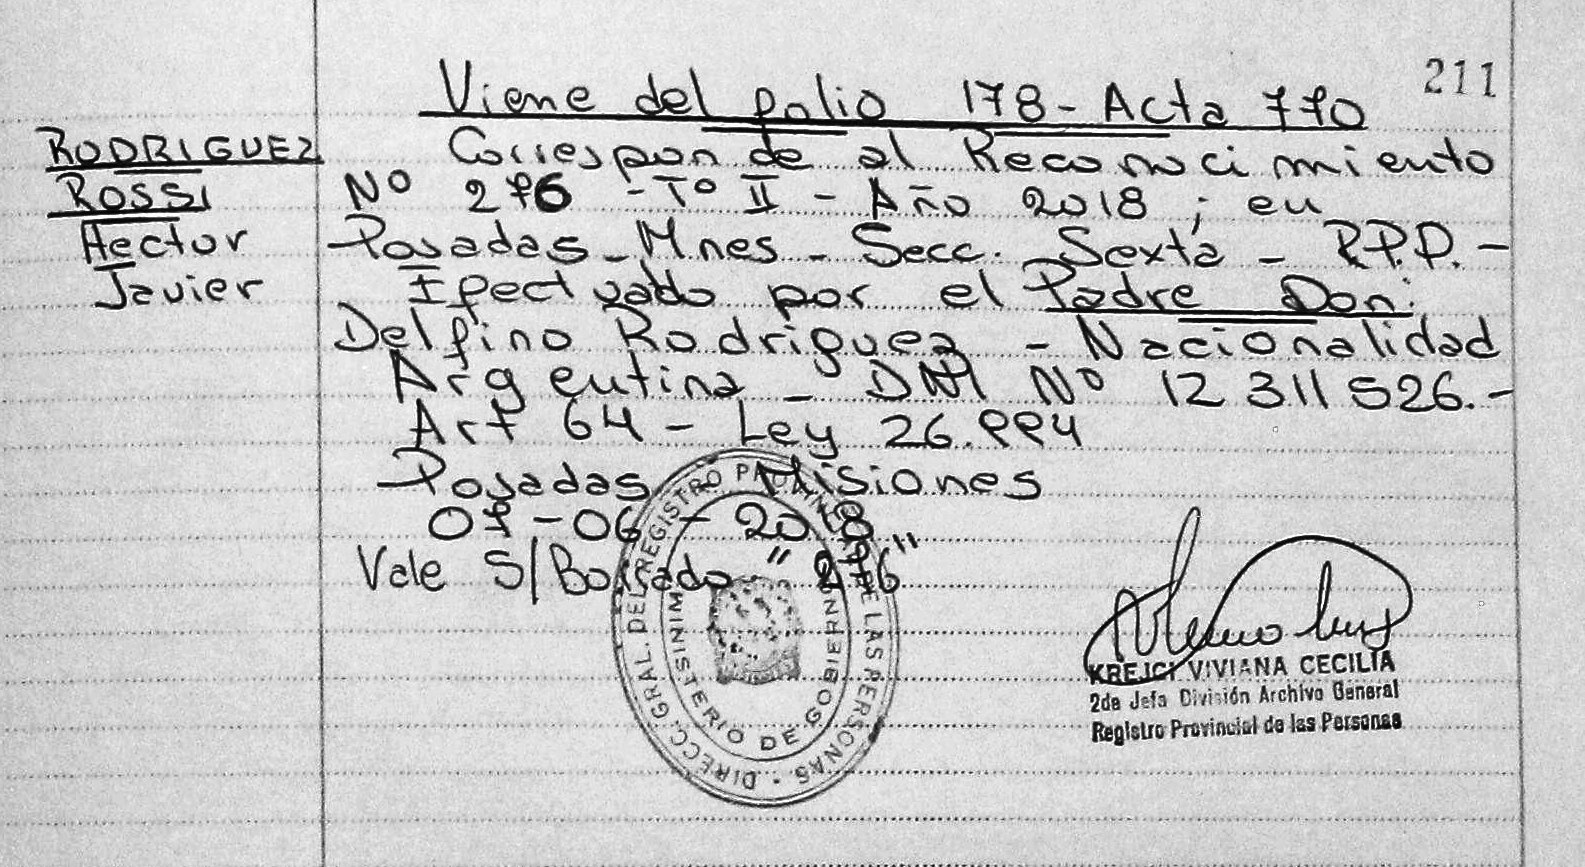 211
Viene del folio 178 - Acta 770
RODRIGUEZ
ROSSI
Hector
Javier
Corresponde al Reconocimiento
Nº 276 - Tº II - Año 2018 ; en
Posadas - Mnes - Secc. Sexta - R.P.P. -
Efectuado por el Padre Don:
Delfino Rodriguez - Nacionalidad
Argentina - DNI Nº 12 311 526.-
Art 64 - Ley 26.994
Posadas Misiones
07-06-2018
Vale S/Borrado "276"
DIRECC. GRAL. DEL REGISTRO PROVINCIAL DE LAS PERSONAS
MINISTERIO DE GOBIERNO
KREJCI VIVIANA CECILIA
2da Jefa División Archivo General
Registro Provincial de las Personas